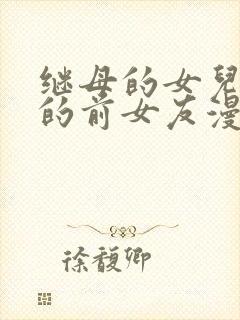 继母的女兒
的前女友漫
徐馥卿